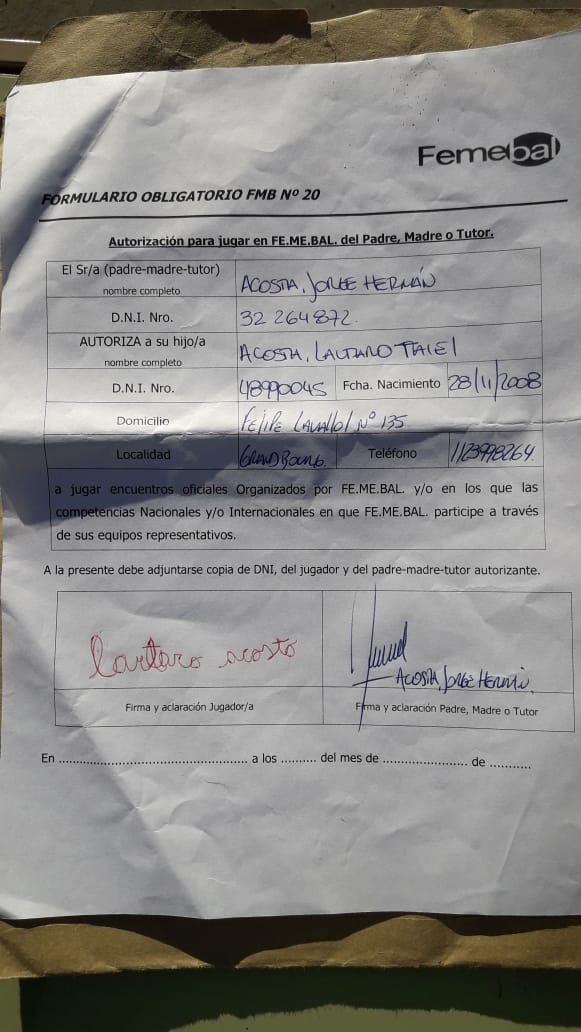 Femebal
FORMULARIO OBLIGATORIO FMB Nº 20
Autorización para jugar en FE.ME.BAL. del Padre, Madre o Tutor.
El Sr/a (padre-madre-tutor) nombre completo ACOSTA, JORGE HERNÁN
D.N.I. Nro. 32 264872
AUTORIZA a su hijo/a nombre completo ACOSTA, LAUTARO
D.N.I. Nro. 48990045 Fcha. Nacimiento 28/11/2008
Domicilio FELIPE Nº 135
Localidad GRAND BOURG. Teléfono 1123998264.
a jugar encuentros oficiales Organizados por FE.ME.BAL. y/o en los que las
competencias Nacionales y/o Internacionales en que FE.ME.BAL. participe a través
de sus equipos representativos.
A la presente debe adjuntarse copia de DNI, del jugador y del padre-madre-tutor autorizante.
lautaro acosta
ACOSTA, JORGE HERNÁN.
Firma y aclaración Jugador/a Firma y aclaración Padre, Madre o Tutor
En ........................................................ a los .......... del mes de ......................... de ............